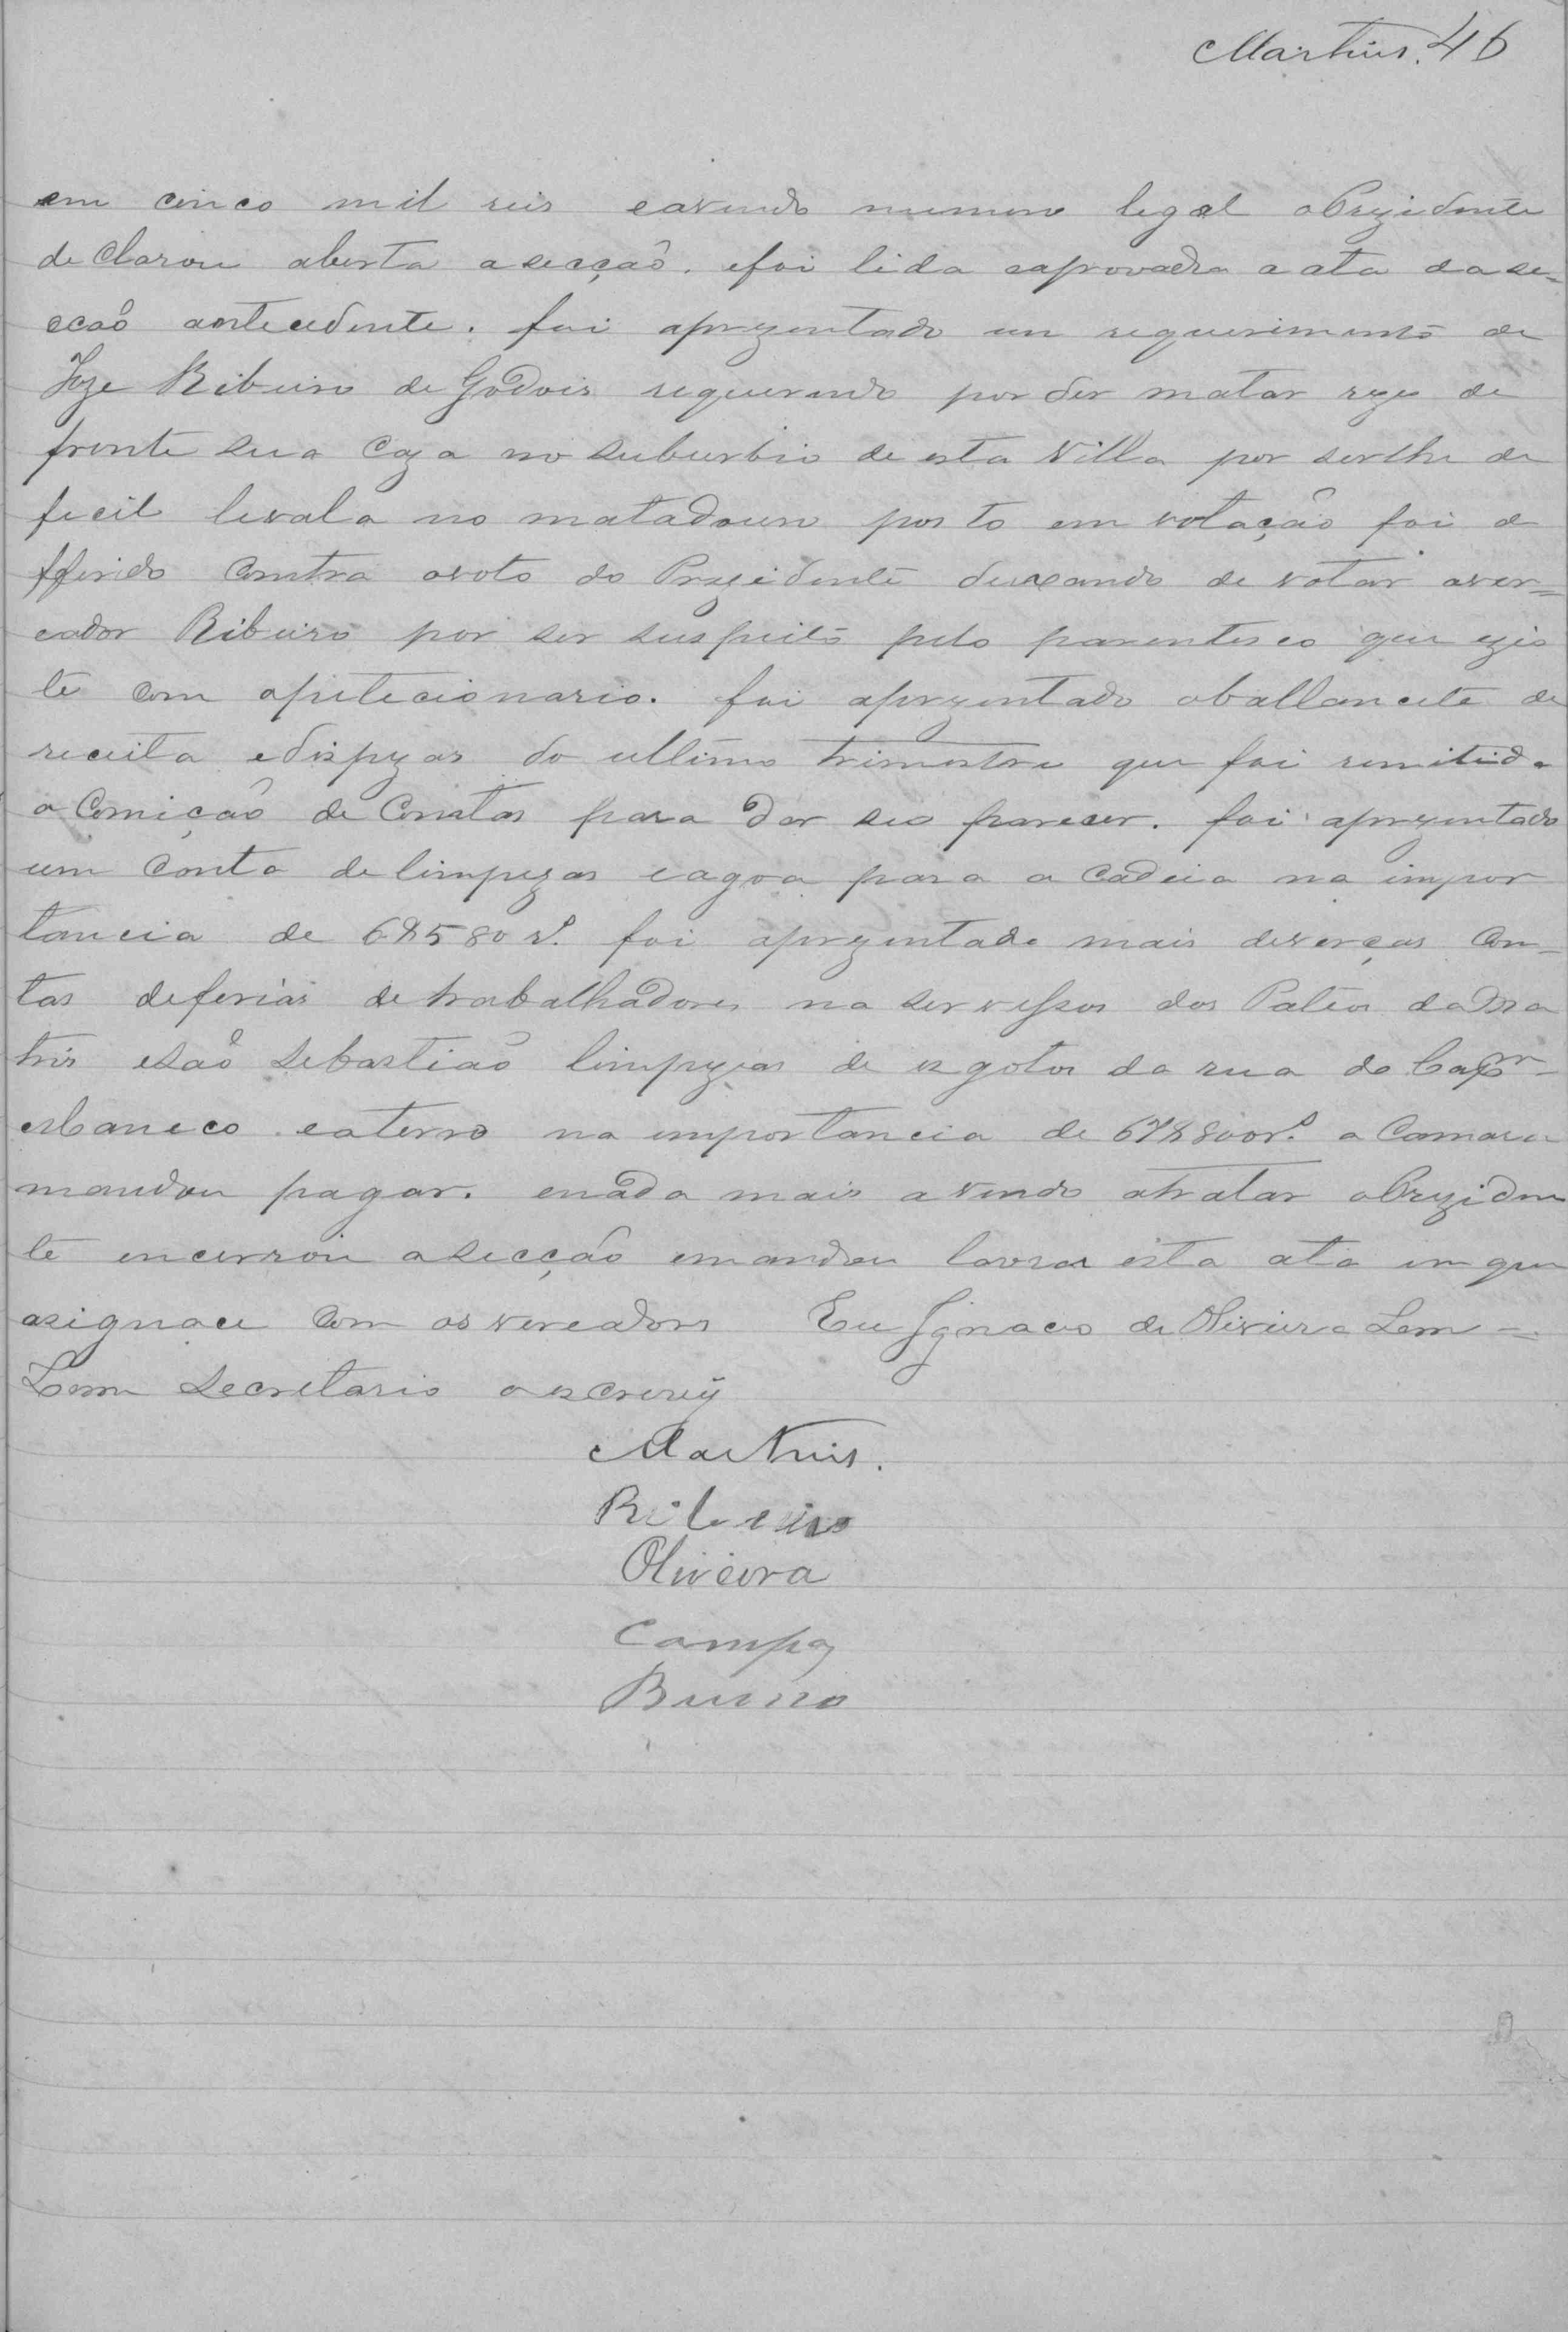 Martins. 46
em cinco mil reis eavendo numero legal oPrezidente
de Clarou aberta asecção. efoi lida eaprovada a ata da se-
ecaõ antecedente. foi aprezentado um requerimento de
Joze Ribeiro de Godois requerendo por der matar rezes de
fronte sua Caza no suburbio de esta Villa por serlhe de
ficil levala no matadouro pos to em votação foi de
fferido Contra ovoto do Prezidente deixando de votar over=
eador Ribeiro por ser suspeito pelo parentesco que ezis
te com opiticionario. foi aprezentado oballancete de
receita edispezas do ultimo trimestre que foi remitida
a Comição de Contas para dar seo parecer. foi aprezentado
um Conta de limpezas eagoa para a Cadeia na impor
tancia de 6$580 rs. foi aprezentado mais deverças Con-
tas deferias de trabalhadores na servissos dos Pateos da Ma
tris esaõ Sebastiaõ limpezas de esgotos da rua do Capm
Maneco eaterro na importancia de 67$800rs. a Camara
mandou pagar. enada mais avendo atratar oPreziden
te encerrou asecção emandou lavrar esta ata em que
asignace Com os vereadores Eu Ignacio de Oliveira Lem=
Leme Secretario o escrevy
Martins.
Ribeiro
Oliveira
Campos
Bueno